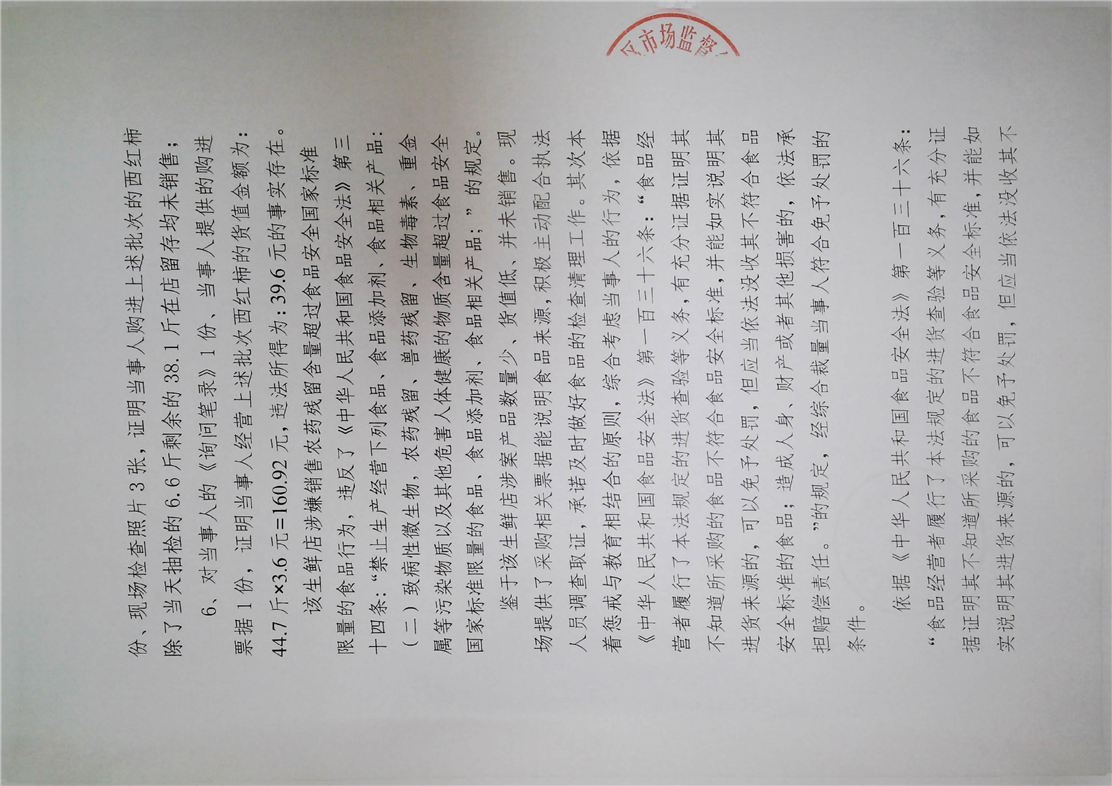 份、现场检查照片 3 张，证明当事人购进上述批次的西红柿
除了当天抽检的 6.6 斤剩余的 38.1 斤在店留存均未销售；
6、对当事人的《询问笔录》1 份、当事人提供的购进
票据 1 份，证明当事人经营上述批次西红柿的货值金额为：
44.7 斤×3.6 元=160.92 元，违法所得为：39.6 元的事实存在。
该生鲜店涉嫌销售农药残留含量超过食品安全国家标准
限量的食品行为，违反了《中华人民共和国食品安全法》第三
十四条：“禁止生产经营下列食品、食品添加剂、食品相关产品：
（二）致病性微生物，农药残留、兽药残留、生物毒素、重金
属等污染物质以及其他危害人体健康的物质含量超过食品安全
国家标准限量的食品、食品添加剂、食品相关产品；”的规定。
鉴于该生鲜店涉案产品数量少、货值低、并未销售。现
场提供了采购相关票据能说明食品来源，积极主动配合执法
人员调查取证，承诺及时做好食品的检查清理工作。其次本
着惩戒与教育相结合的原则，综合考虑当事人的行为，依据
《中华人民共和国食品安全法》第一百三十六条：“食品经
营者履行了本法规定的进货查验等义务，有充分证据证明其
不知道所采购的食品不符合食品安全标准，并能如实说明其
进货来源的，可以免予处罚，但应当依法没收其不符合食品
安全标准的食品；造成人身、财产或者其他损害的，依法承
担赔偿责任。”的规定，经综合裁量当事人符合免予处罚的
条件。
依据《中华人民共和国食品安全法》第一百三十六条：
“食品经营者履行了本法规定的进货查验等义务，有充分证
据证明其不知道所采购的食品不符合食品安全标准，并能如
实说明其进货来源的，可以免予处罚，但应当依法没收其不
区市场监督